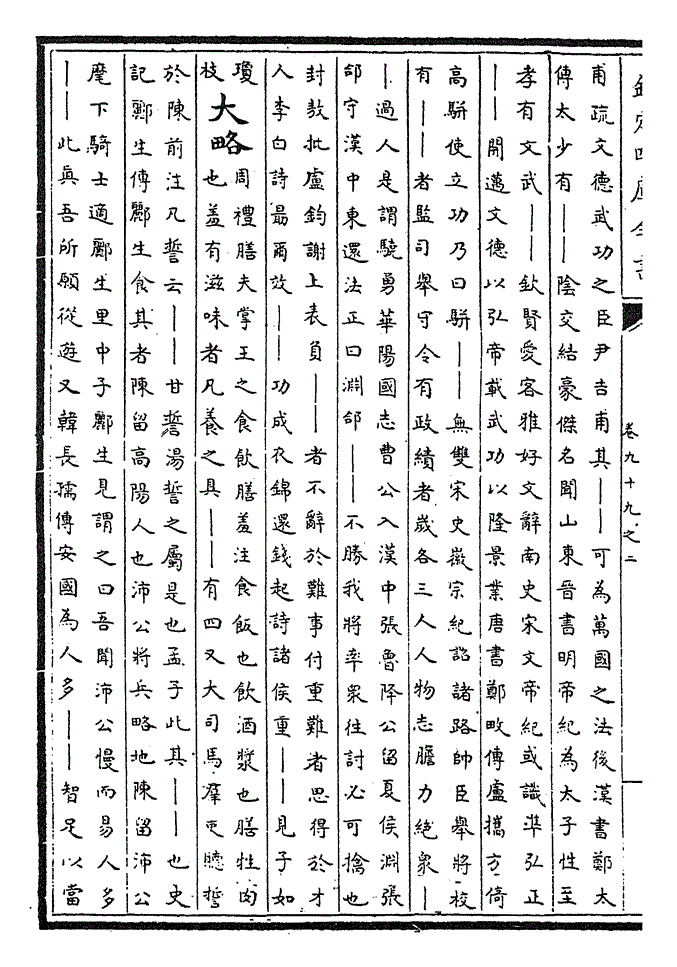 欽定四庫全書
卷九十九之二
甫疏文德武功之臣尹吉甫其——可為萬國之法後漢書鄭太
傳太少有——陰交結豪傑名聞山東晉書明帝紀為太子性至
孝有文武——欽賢愛客雅好文辭南史宋文帝紀或識準弘正
——開邁文德以弘帝載武功以隆景業唐書鄭畋傳盧攜方倚
高駢使立功乃曰駢——無雙宋史徽宗紀詔諸路帥臣舉將校
有——者監司舉守令有政績者歲各三人人物志膽力絕衆—
—過人是謂驍勇華陽國志曹公入漢中張魯降公留夏侯淵張
郃守漢中東還法正曰淵郃——不勝我將率衆往討必可擒也
封敖批盧鈞謝上表負——者不辭於難事付重難者思得於才
人李白詩最爾效——功成衣錦還錢起詩諸侯重——見子如
瓊
枝
大略
周禮膳夫掌王之食飲膳羞注食飯也飲酒漿也膳牲肉
也羞有滋味者凡養之具——有四又大司馬羣吏聽誓
於陳前注凡誓云——甘誓湯誓之屬是也孟子此其——也史
記酈生傳酈生食其者陳留高陽人也沛公將兵略地陳留沛公
麾下騎士適酈生里中子酈生見謂之曰吾聞沛公慢而易人多
——此真吾所願從遊又韓長孺傳安國為人多——智足以當